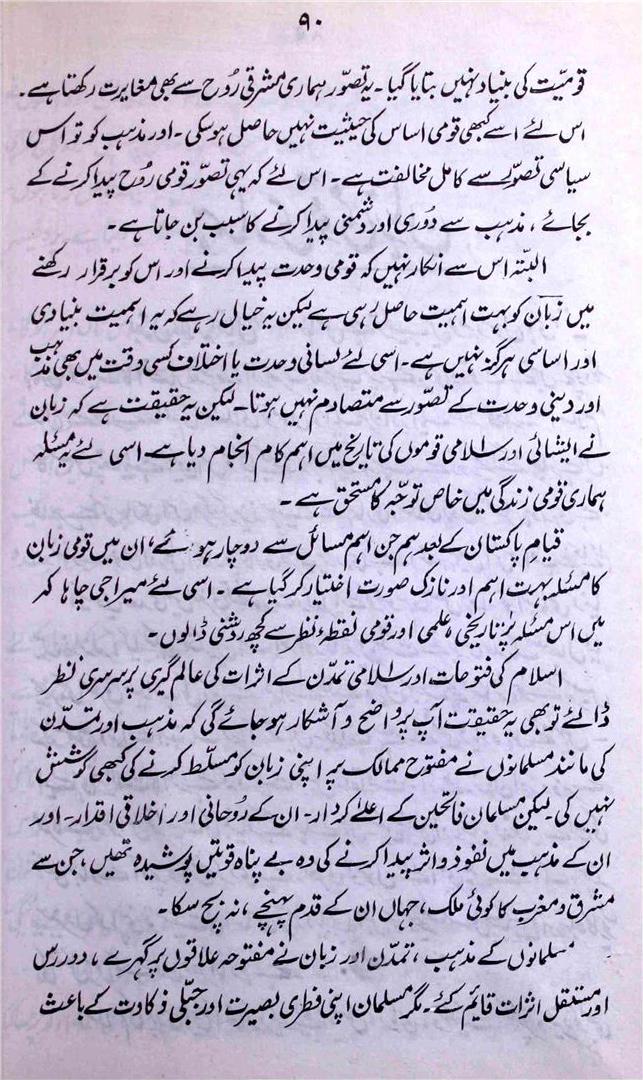 ۹۰
قومیّت کی بنیاد نہیں بتایا گیا۔ یہ تصوّر ہماری مشرقی رُوح سے بھی مغایرت رکھتا ہے۔
اس لئے اسے کبھی قومی اساس کی حیثیت نہیں حاصل ہوسکی۔ اور مذہب کو تو اس
سیاسی تصوّر سے کامل مخالفت ہے۔ اس لئے کہ یہی تصوّر قومی رُوح پیدا کرنے کے
بجائے، مذہب سے دُوری اور دشمنی پیدا کرنے کا سبب بن جاتا ہے۔
البتّہ اس سے انکار نہیں کہ قومی وحدت پیدا کرنے اور اس کو برقرار رکھنے
میں زبان کو بہت اہمیت حاصل رہی ہے لیکن یہ خیال رہے کہ یہ اہمیت بنیادی
اور اساسی ہرگز نہیں ہے۔ اسی لئے لسانی وحدت یا اختلاف کسی وقت میں بھی مذہب
اور دینی وحدت کے تصوّر سے متصادم نہیں ہوتا۔ لیکن یہ حقیقت ہے کہ زبان
نے ایشائی اور اسلامی قوموں کی تاریخ میں اہم کام انجام دیا ہے۔ اسی لئے یہ مسئلہ
ہماری قومی زندگی میں خاص توجّہ کا مستحق ہے۔
قیامِ پاکستان کے بعد ہم جن اہم مسائل سے دوچار ہوئے، ان میں قومی زبان
کا مسئلہ بہت اہم اور نازک صورت اختیار کر گیا ہے۔ اسی لئے میرا جی چاہا کہ
میں اس مسئلہ پر تاریخی، علمی اور قومی نقطۂ نظر سے کچھ روشنی ڈالوں۔
اسلام کی فتوحات اور اسلامی تمدّن کے اثرات کی عالم گیری پر سرسری نظر
ڈالئے تو بھی یہ حقیقت آپ پر واضح و آشکار ہو جائے گی کہ مذہب اور تمدّن
کی مانند مسلمانوں نے مفتوح ممالک پر اپنی زبان کو مسلّط کرنے کی کبھی کوشش
نہیں کی۔ لیکن مسلمان فاتحین کے اعلےٰ کردار۔ ان کے رُوحانی اور اخلاقی اقدار۔ اور
ان کے مذہب میں نفوذ و اثر پیدا کرنے کی وہ بے پناہ قوتیں پوشیدہ تھیں، جن سے
مشرق و مغرب کا کوئی ملک، جہاں ان کے قدم پہنچے، نہ بچ سکا۔
مسلمانوں کے مذہب، تمدّن اور زبان نے مفتوحہ علاقوں پر گہرے، دوررس
اور مستقل اثرات قائم کئے۔ مگر مسلمان اپنی فطری بصیرت اور جبلّی ذکاوت کے باعث